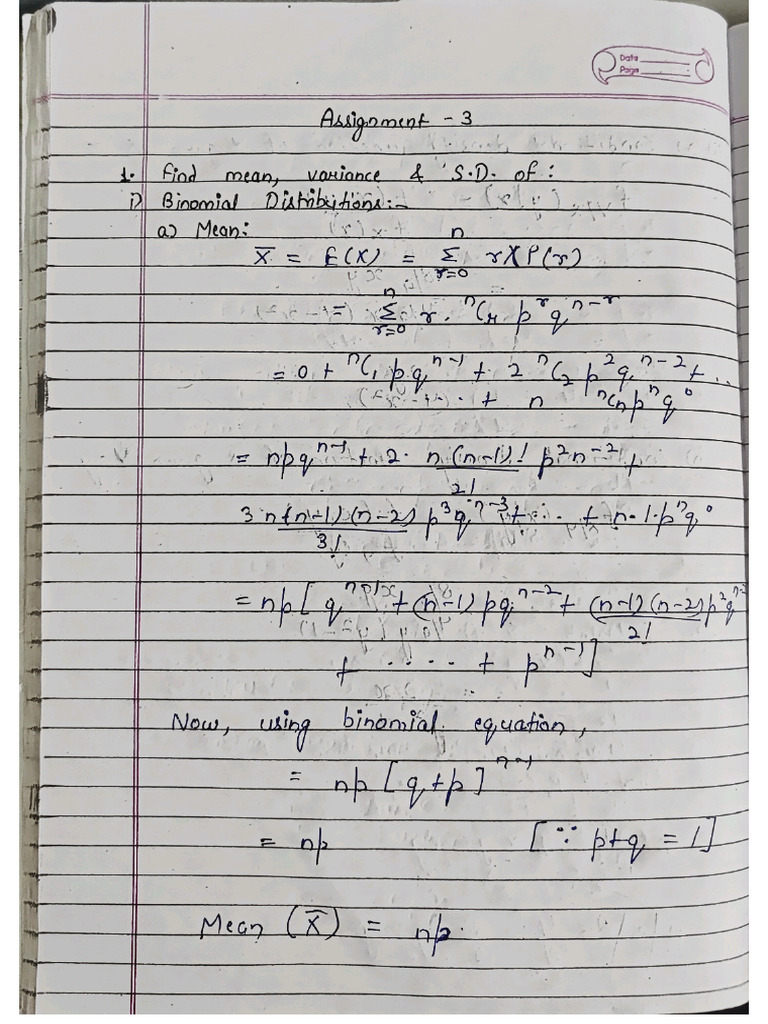 Date
Page
Assignment - 3
1. Find mean, variance & S.D. of :
i) Binomial Distributions:-
a) Mean:
X̅ = E(X) = Σ_{r=0}^{n} r X P(r)
= Σ_{r=0}^{n} r . ⁿCᵣ pʳ qⁿ⁻ʳ
= 0 + ⁿC₁ p qⁿ⁻¹ + 2 ⁿC₂ p² qⁿ⁻² + ..
. + n ⁿCₙ pⁿ q⁰
= npqⁿ⁻¹ + 2 . n (n-1)! / 2! p² n⁻² +
3 n (n-1) (n-2) / 3! p³ qⁿ⁻³ + . . . + n . 1 . pⁿ q⁰
= np [ qⁿ⁻¹ + (n-1) p qⁿ⁻² + (n-1) (n-2) / 2! p² qⁿ⁻³
+ . . . . . + pⁿ⁻¹ ]
Now, using binomial equation,
= np [ q + p ]ⁿ⁻¹
= np [ ∵ p + q = 1 ]
Mean (X̅) = np.